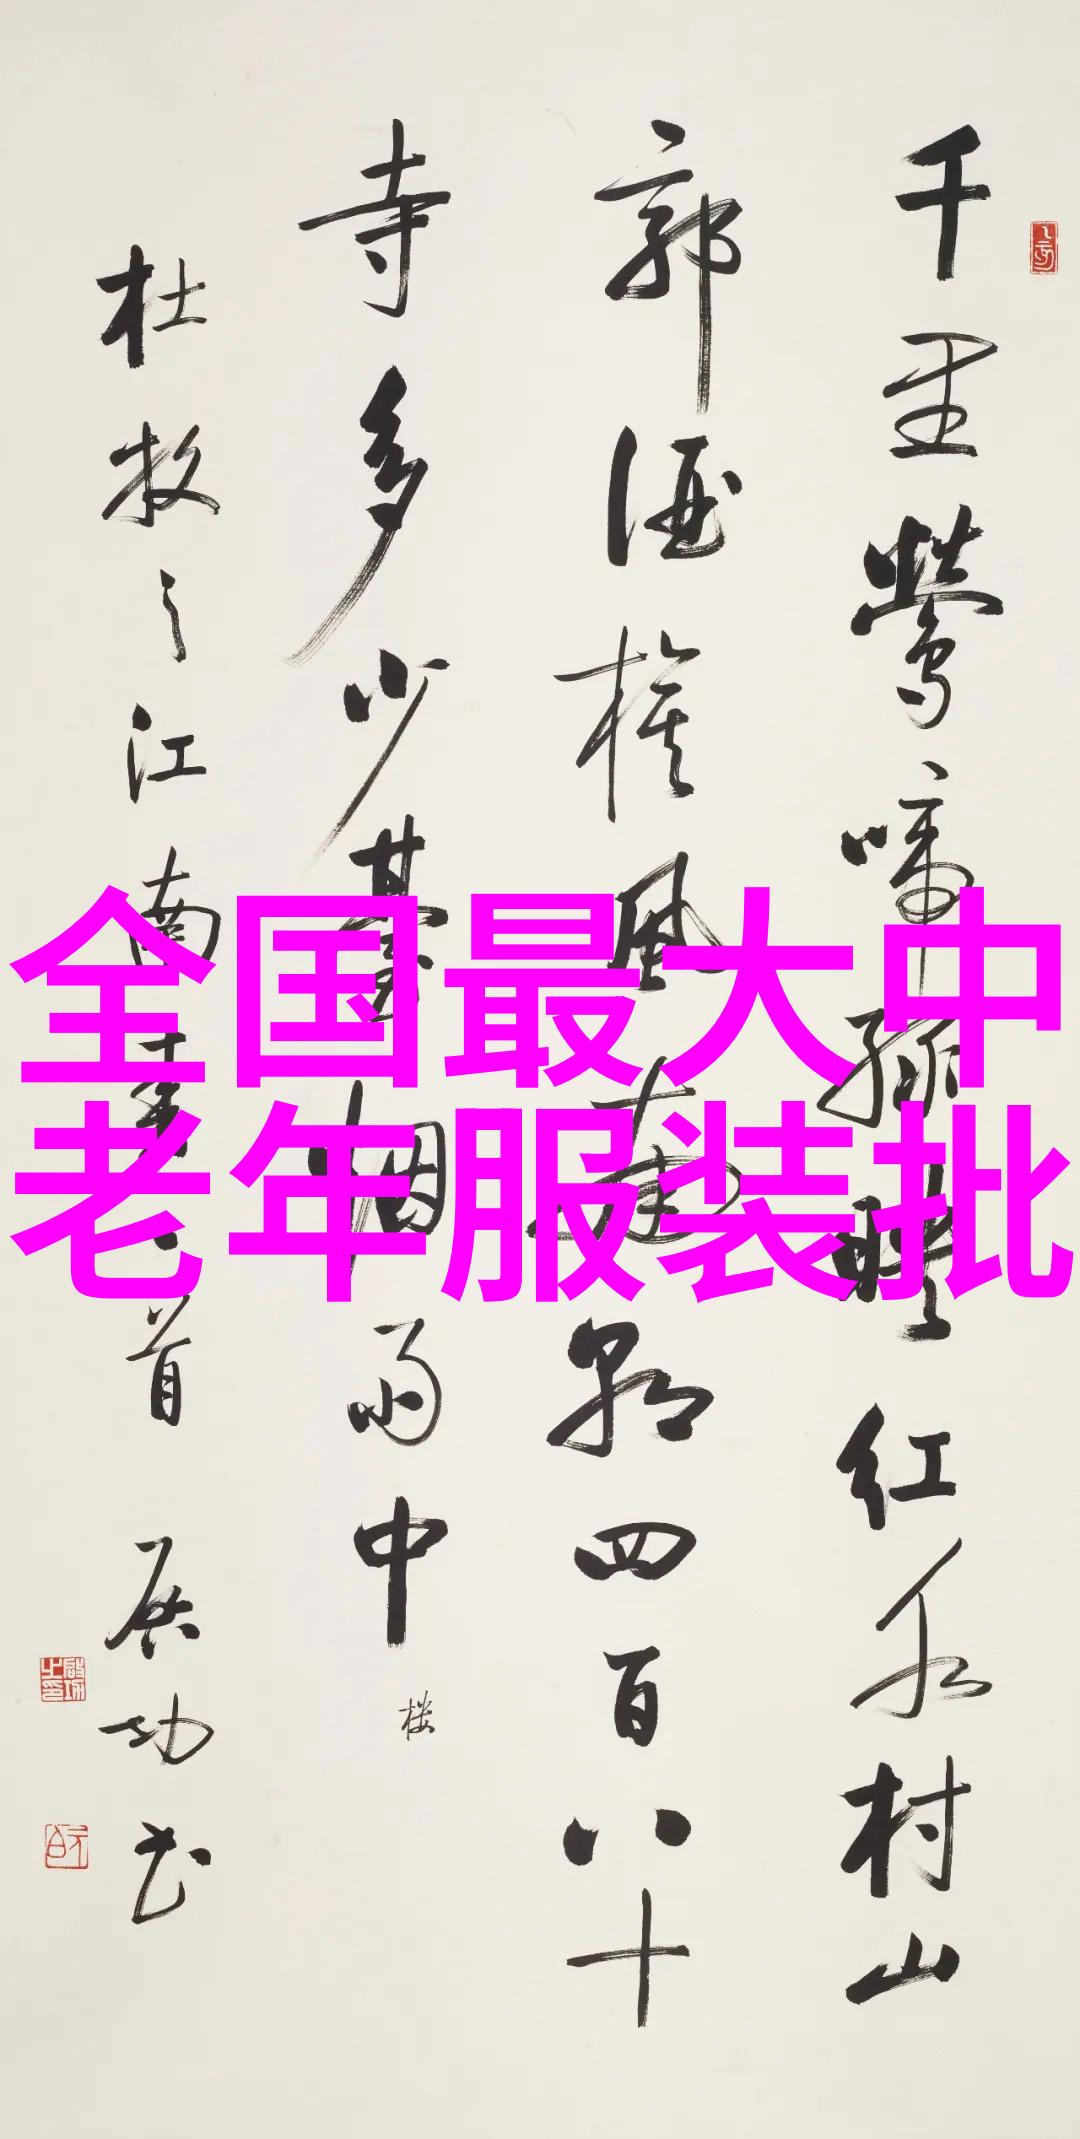 全国最大中
老年服装批
千里鶯啼绿映红水村山
郭酒旗风南朝四百八十
寺多少臺烟雨中
楼
杜牧之江南春一首 启功书